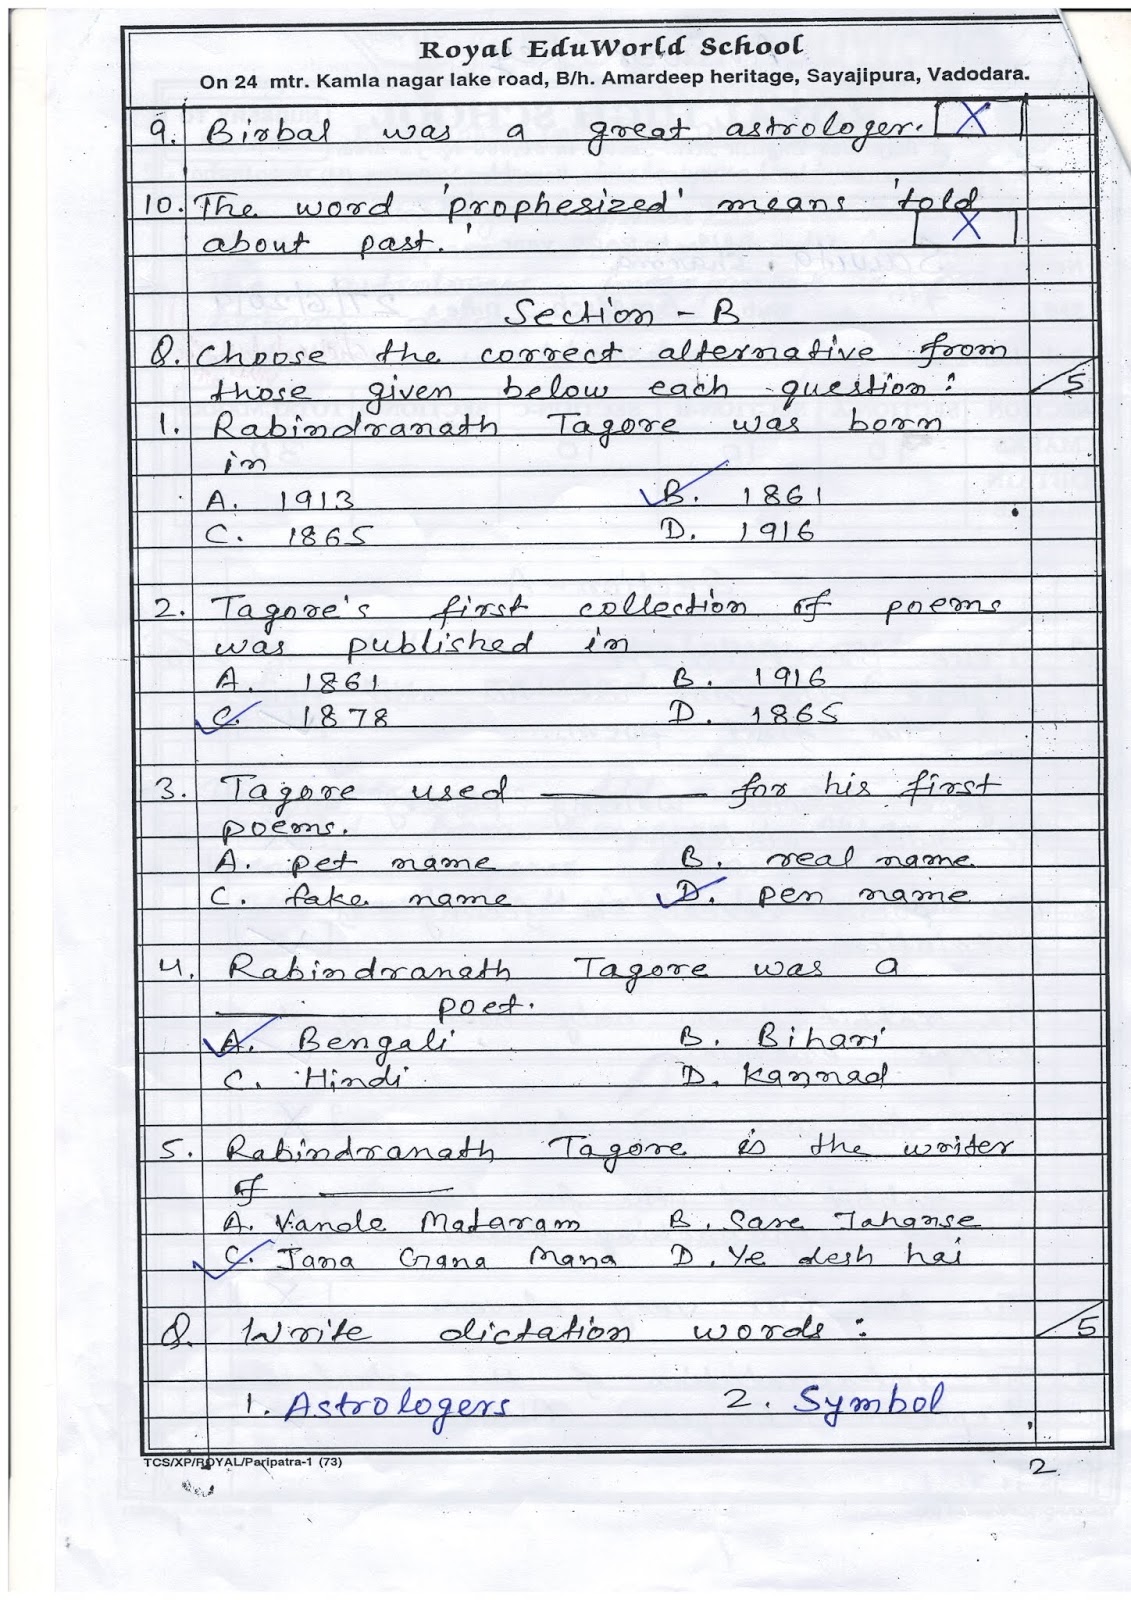 Royal EduWorld School
On 24 mtr. Kamla nagar lake road, B/h. Amardeep heritage, Sayajipura, Vadodara.
9. Birbal was a great astrologer. X
10. The word 'prophesized' means 'told
about past.' X
Section - B
Q. Choose the correct alternative from
those given below each question: 5
1. Rabindranath Tagore was born
in
A. 1913 B. 1861
C. 1865 D. 1916
2. Tagore's first collection of poems
was published in
A. 1861 B. 1916
C. 1878 D. 1865
3. Tagore used ______ for his first
poems.
A. pet name B. real name
C. fake name D. pen name
4. Rabindranath Tagore was a
______ poet.
A. Bengali B. Bihari
C. Hindi D. Kannad
5. Rabindranath Tagore is the writer
of ______
A. Vande Mataram B. Sare Jahanse
C. Jana Gana Mana D. Ye desh hai
Q. Write dictation words: 5
1. Astrologers 2. Symbol
TCS/XP/ROYAL/Paripatra-1 (73) 2